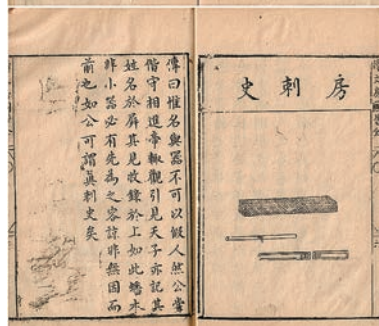 房刺史
傳曰惟名與器不可以假人然公掌
偕守相進帝輒觀引見天子亦記其
姓名於屏其見收錄於上如此蟠木
非小器必有先為之容諒非無因而
前也如公可謂真刺史矣